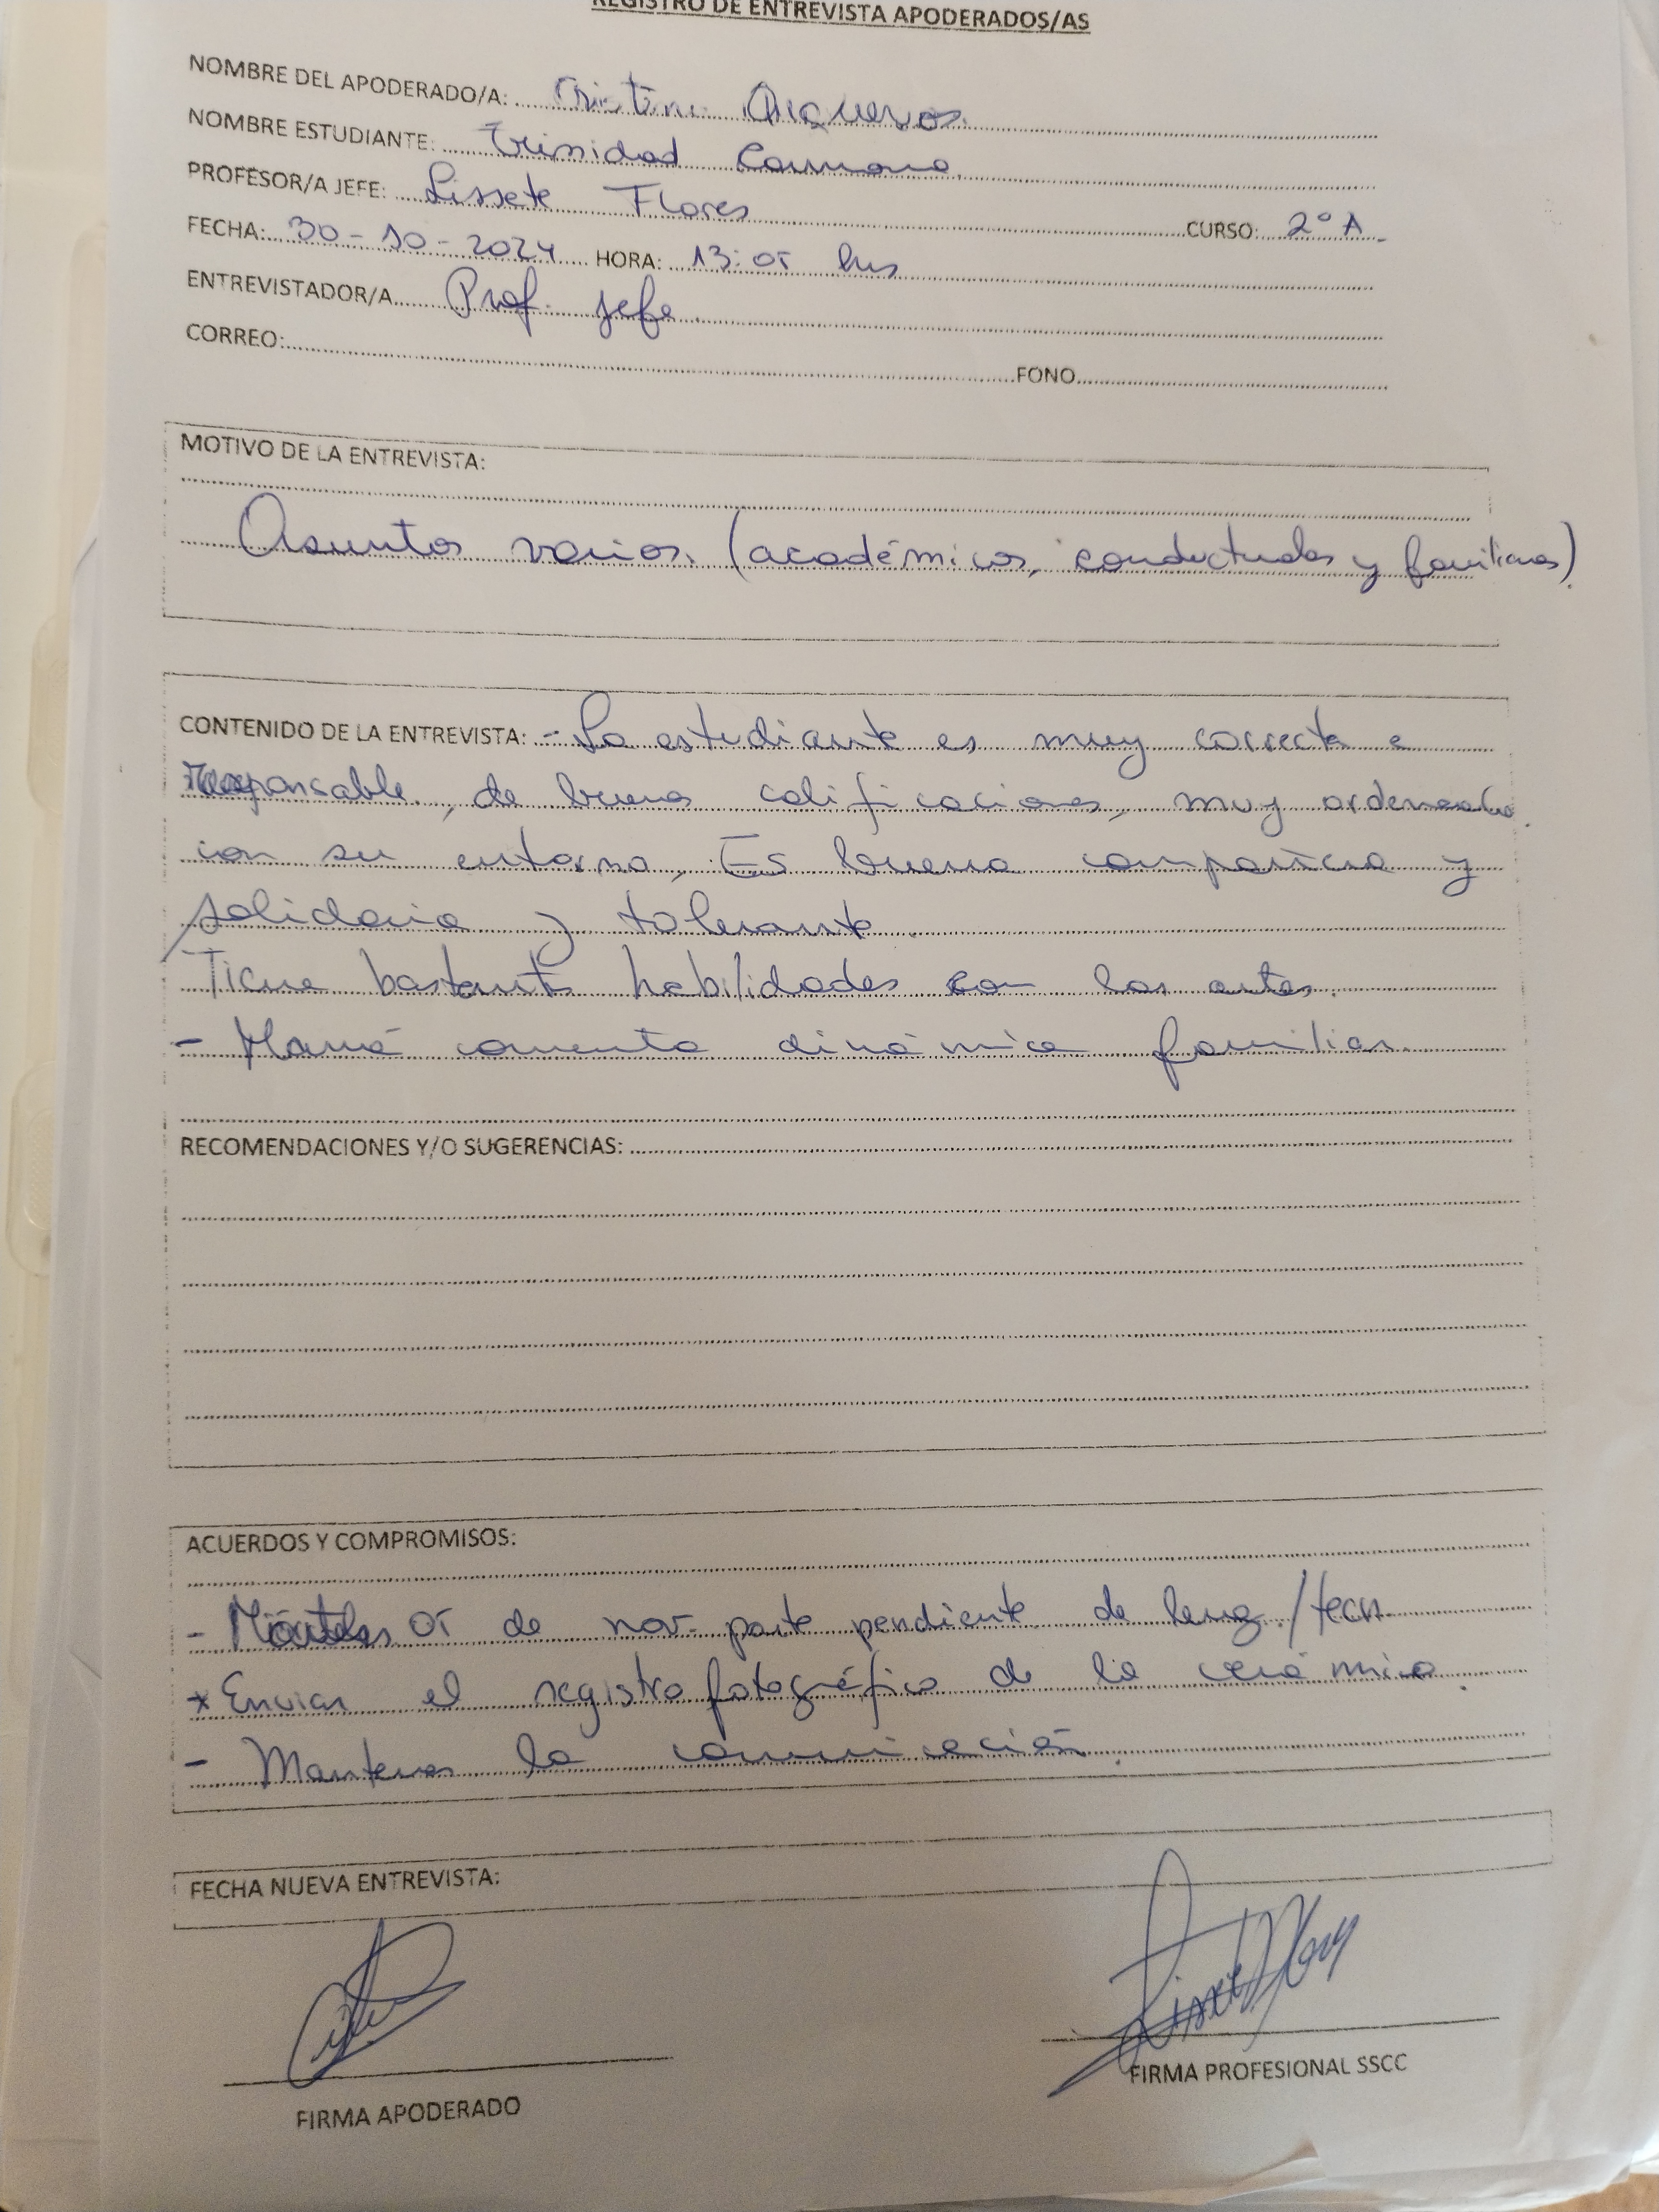 REGISTRO DE ENTREVISTA APODERADOS/AS
NOMBRE DEL APODERADO/A: Cristina Oraqueros.
NOMBRE ESTUDIANTE: Trinidad Carmona.
PROFESOR/A JEFE: Lissete Flores
CURSO: 2° A.
FECHA: 30-10-2024 HORA: 13:05 hrs
ENTREVISTADOR/A Prof. jefe.
CORREO:
FONO
MOTIVO DE LA ENTREVISTA:
Asuntos varios. (académicos, conductuales y familiares).
CONTENIDO DE LA ENTREVISTA: - La estudiante es muy correcta e
responsable, de buenas calificaciones, muy ordenada
con su entorno, Es buena compañera y
solidaria y tolerante.
Tiene bastantes habilidades con las artes.
- Mamá comenta dinámica familiar.
RECOMENDACIONES Y/O SUGERENCIAS:
ACUERDOS Y COMPROMISOS:
- 05 de nov. parte pendiente de leng./tecn.
* Enviar el registro fotográfico de la cerámica.
- Mantener la comunicación.
FECHA NUEVA ENTREVISTA:
FIRMA APODERADO
FIRMA PROFESIONAL SSCC